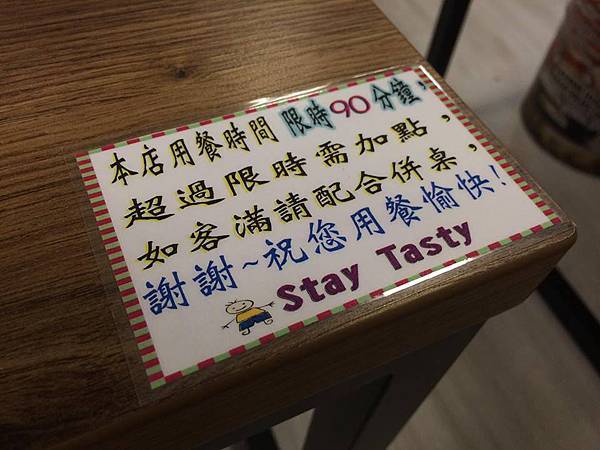 本店用餐時間 限時90分鐘，
超過限時需加點，
如客滿請配合併桌，
謝謝~祝您用餐愉快!
Stay Tasty